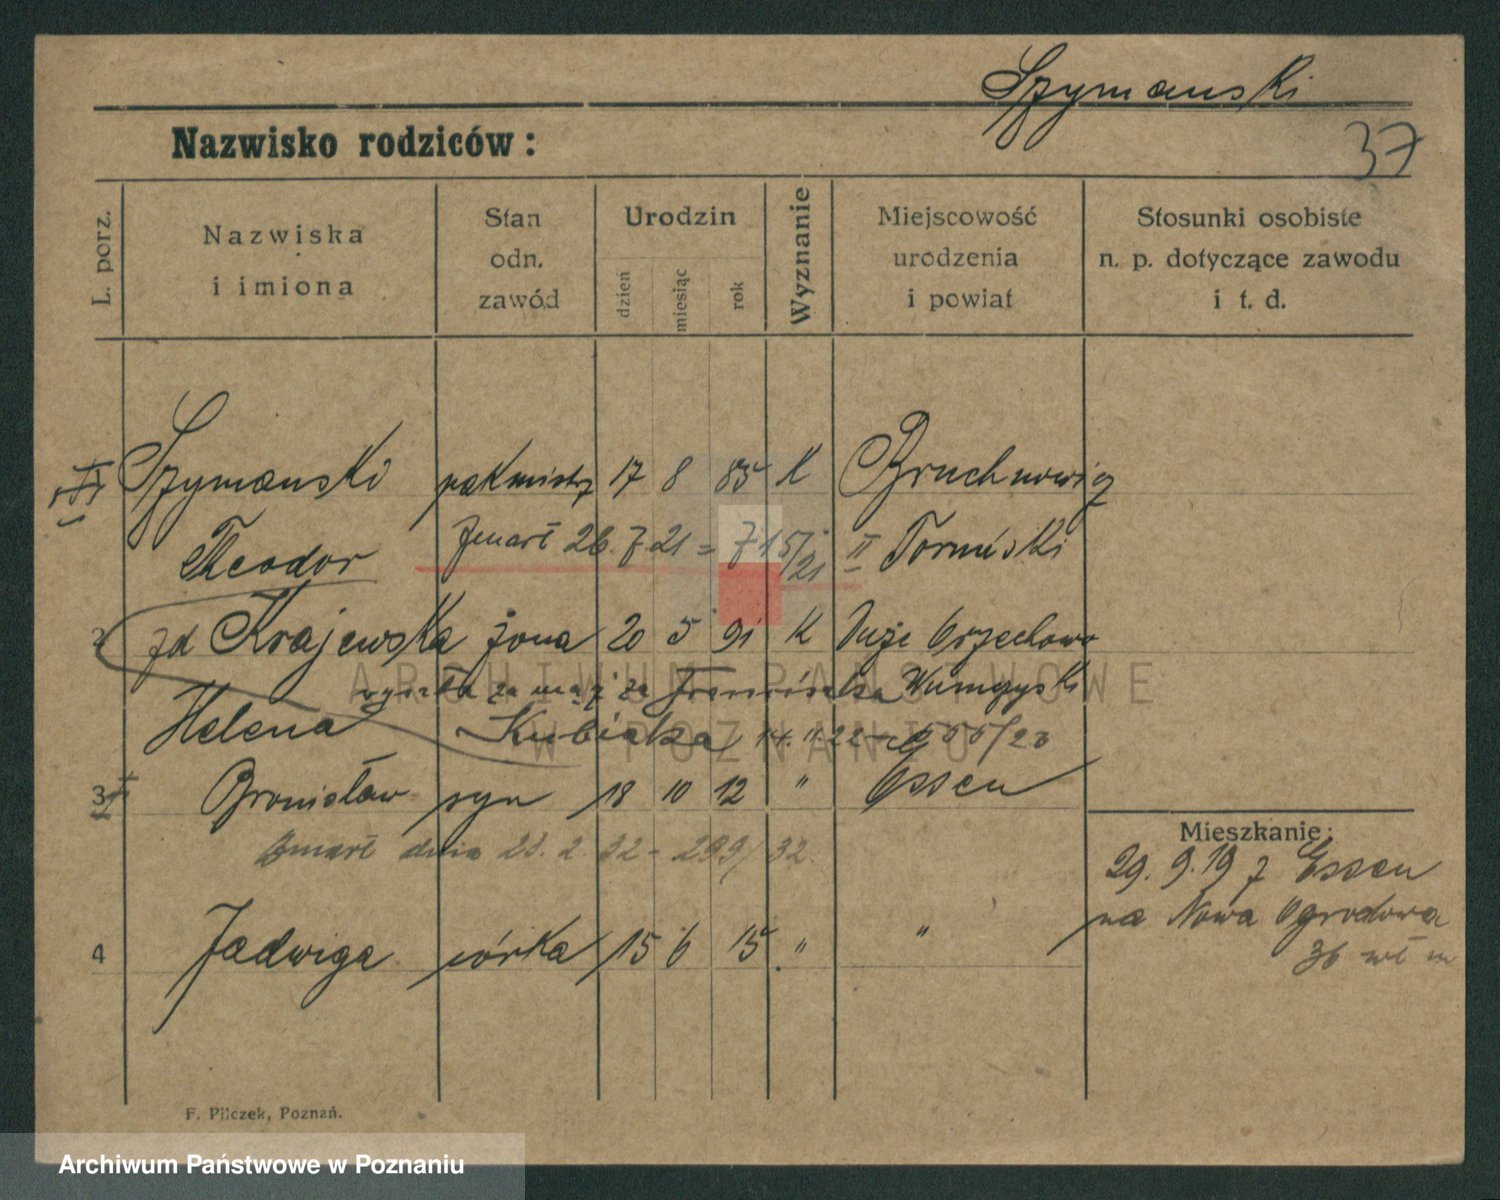 Szymanski
37
Nazwisko rodziców:
L. porz.
Nazwiska
i imiona
Stan
odn.
zawód
Urodzin
dzień
miesiąc
rok
Wyznanie
Miejscowość
urodzenia
i powiat
Stosunki osobiste
n. p. dotyczące zawodu
i t. d.
Szymanski pakmistrz 17 8 85 K Bruchnowicz
Theodor Zmarł 26.7.21 = 715/21 II Toruński
2 zd Krajewska żona 20 5 91 K Duże Orzechowo
wyszła za mąż za Franciszka
Helena Kubiaka 14. 11. 22 - 655/23
3 Bronisław syn 18 10 12 " Essen
Zmarł dnia 23. 2. 32 - 299/32.
4 Jadwiga córka 15 6 15 " "
Mieszkanie:
29. 9. 19 z Essen
na Nowa Ogrodowa
36
F. Pilczek, Poznań.
ARCHIWUM PAŃSTWOWE
W POZNANIU
Archiwum Państwowe w Poznaniu